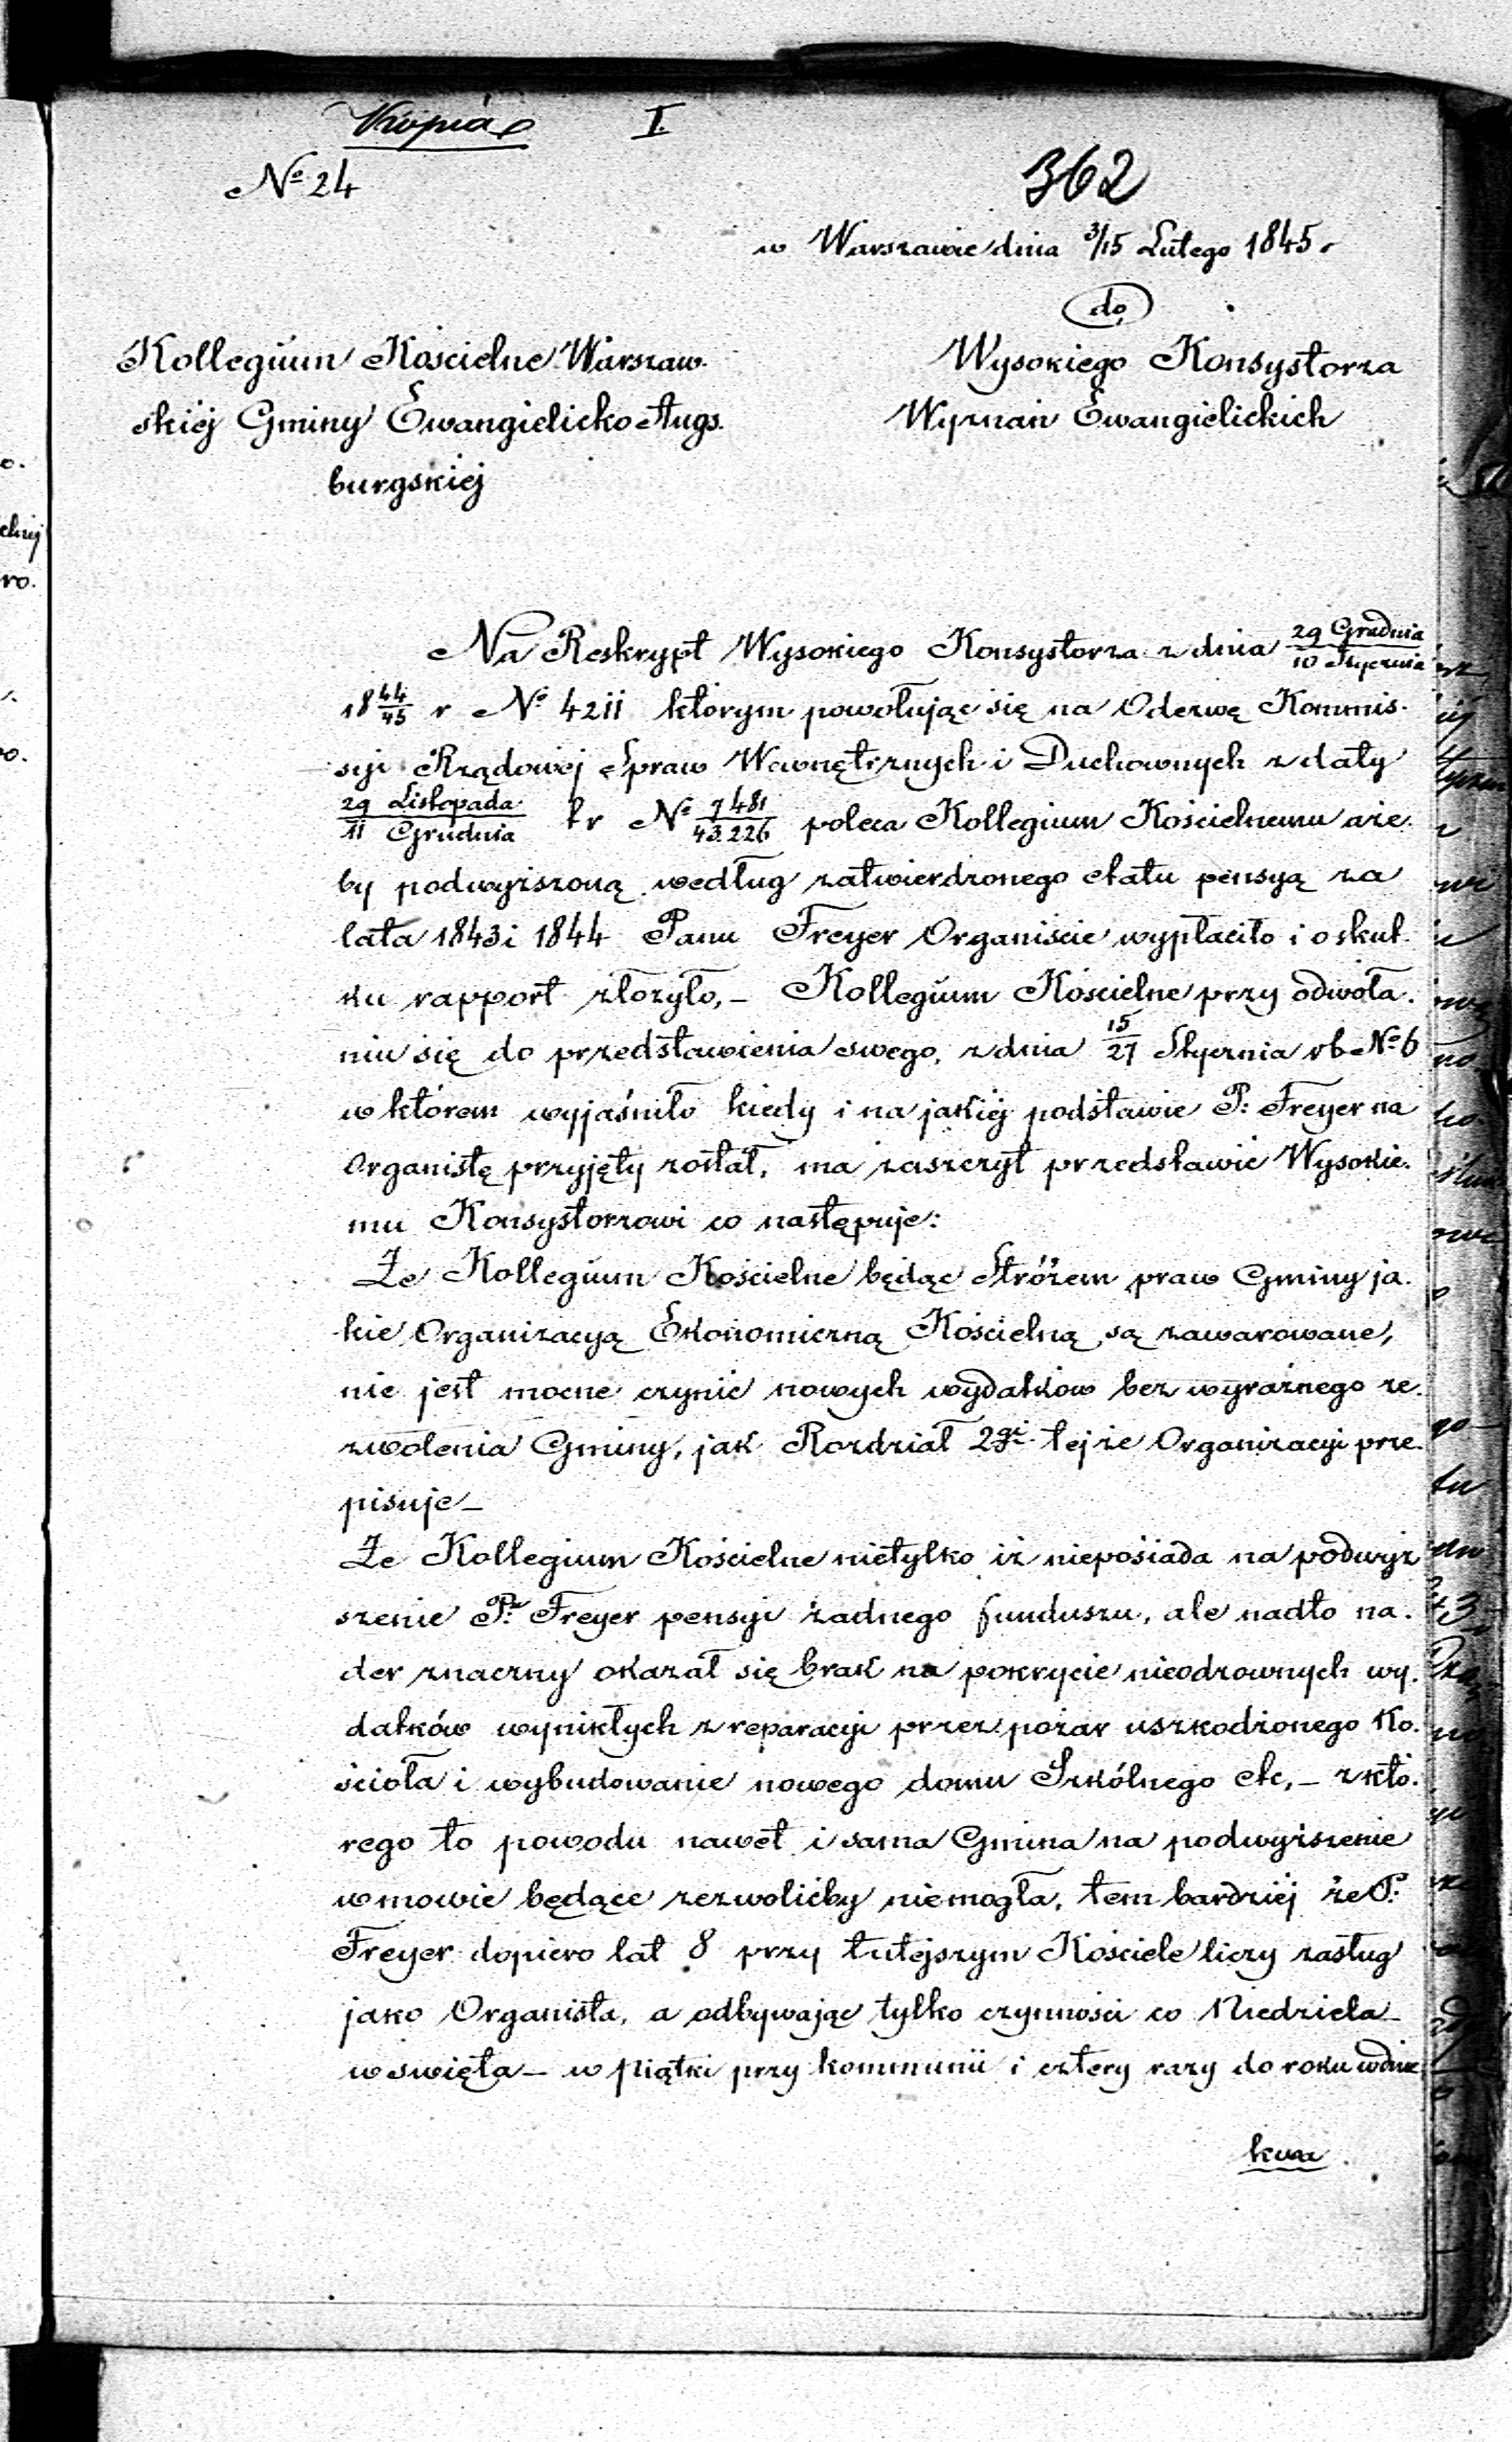 Kopia I.
№ 24
362
w Warszawie dnia 3/15 Lutego 1845 r
do
Kollegium Kościelne Warszaw-
skiéj Gminy Ewangielicko Augs-
burgskiéj
Wysokiego Konsystorza
Wyznań Ewangielickich
Na Reskrypt Wysokiego Konsystorza z dnia 29 Grudnia/10 Stycznia
18 44/45 r № 4211 którym powołując się na Odezwę Kommis-
syi Rządowéj Spraw Wewnętrznych i Duchownych z daty
29 Listopada/11 Grudnia t r № 7481/43.226 poleca Kollegium Kościelnemu aże-
by podwyższoną według zatwierdzonego etatu pensyą za
lata 1843 i 1844 Panu Freyer Organiście wypłaciło i o skut-
ku rapport złożyło, – Kollegium Kościelne przy odwoła-
niu się do przedstawienia swego, z dnia 15/27 Stycznia rb № 6
w którem wyjaśniło kiedy i na jakiéj podstawie P: Freyer na
Organistę przyjęty został, ma zaszczyt przedstawić Wysokie-
mu Konsystorzowi co następuje:
Że Kollegium Kościelne będąc Stróżem praw Gminy ja-
kie Organizacyą Ekonomiczną Kościelną są zawarowane,
nie jest mocne czynić nowych wydatków bez wyraźnego ze-
zwolenia Gminy, jak Rozdział 2gi tejże Organizacyi prze-
pisuje –
Że Kollegium Kościelne nietylko iż nieposiada na podwyż
szenie P: Freyer pensyi żadnego funduszu, ale nadto na-
der znaczny okazał się brak na pokrycie nieodzownych wy-
datków wynikłych z reparacyi przez pożar uszkodzonego Ko-
ścioła i wybudowanie nowego domu Szkólnego etc, – z któ-
rego to powodu nawet i sama Gmina na podwyższenie
w mowie będące zezwolićby niemogła, tem bardziéj że P:
Freyer dopiero lat 8 przy tutejszym Kościele liczy zasług
jako Organista, a odbywając tylko czynności co Niedziela
w święta – w piątki przy kommunii i cztery razy do roku w dnie